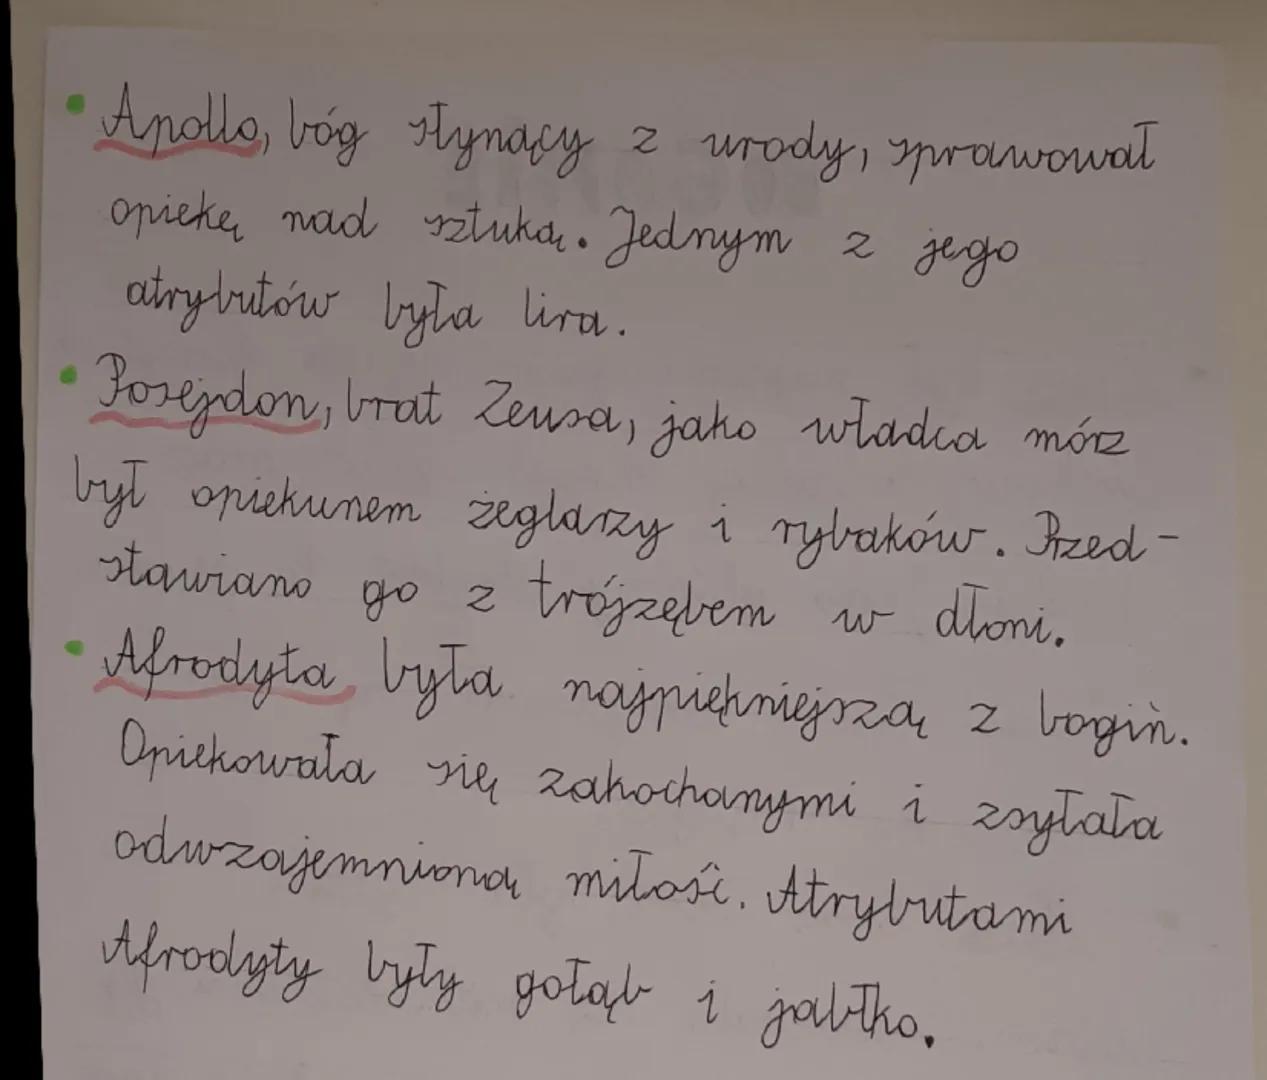 • Apollo, bóg słynący z urody, sprawował
opiekę nad sztuką. Jednym z jego
atrybutów była lira.
• Posejdon, brat Zeusa, jako władca mórz
był opiekunem żeglarzy i rybaków. Przed-
stawiano go z trójzębem w dłoni.
• Afrodyta była najpiękniejszą z bogiń.
Opiekowała się zakochanymi i zsyłała
odwzajemnioną miłość. Atrybutami
Afrodyty były gołąb i jabłko.